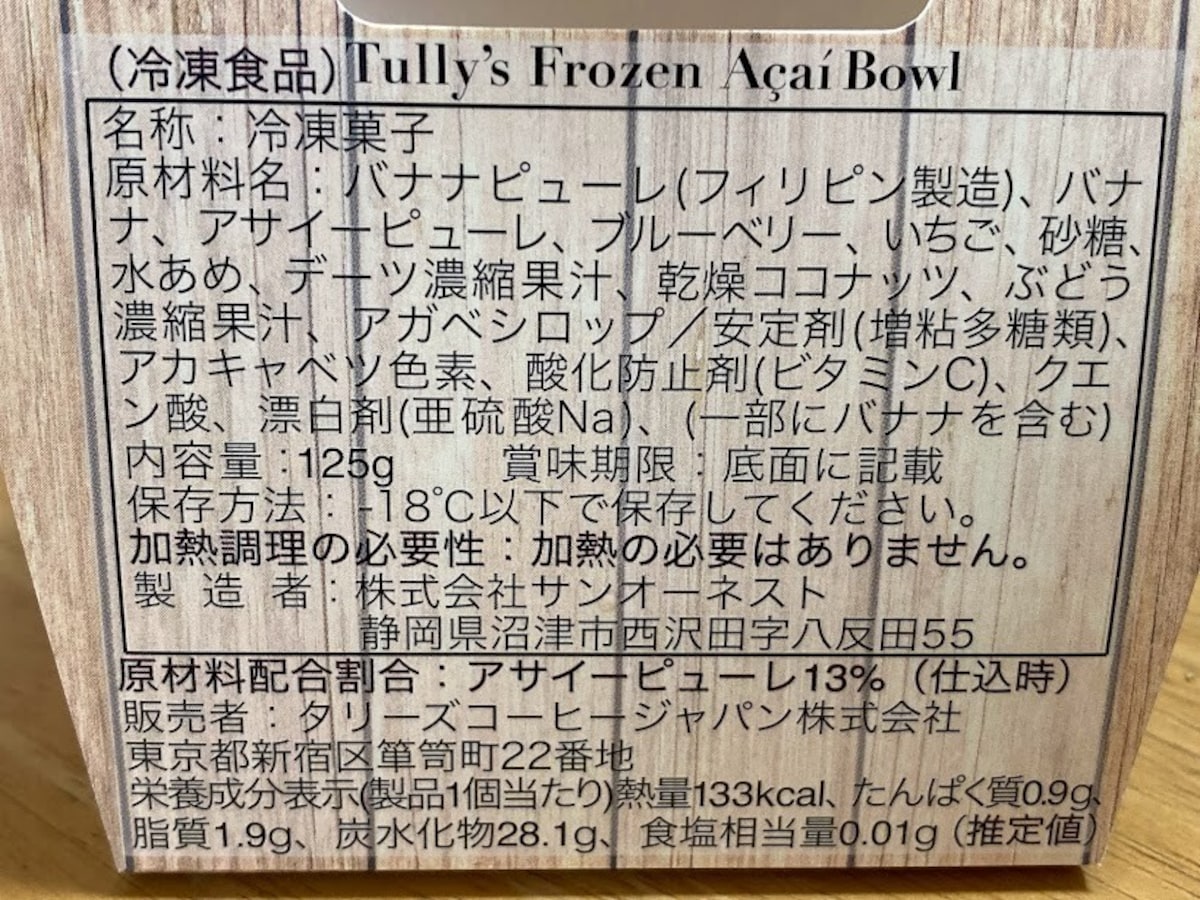 (冷凍食品)Tully's Frozen Açaí Bowl
名称：冷凍菓子
原材料名：バナナピューレ(フィリピン製造)、バナ
ナ、アサイーピューレ、ブルーベリー、いちご、砂糖、
水あめ、デーツ濃縮果汁、乾燥ココナッツ、ぶどう
濃縮果汁、アガベシロップ／安定剤(増粘多糖類)、
アカキャベツ色素、酸化防止剤(ビタミンC)、クエ
ン酸、漂白剤(亜硫酸Na)、(一部にバナナを含む)
内容量：125g 賞味期限：底面に記載
保存方法：-18℃以下で保存してください。
加熱調理の必要性：加熱の必要はありません。
製造者：株式会社サンオーネスト
静岡県沼津市西沢田字八反田55
原材料配合割合：アサイーピューレ13%（仕込時）
販売者：タリーズコーヒージャパン株式会社
東京都新宿区箪笥町22番地
栄養成分表示(製品1個当たり)熱量133kcal、たんぱく質0.9g、
脂質1.9g、炭水化物28.1g、食塩相当量0.01g（推定値）